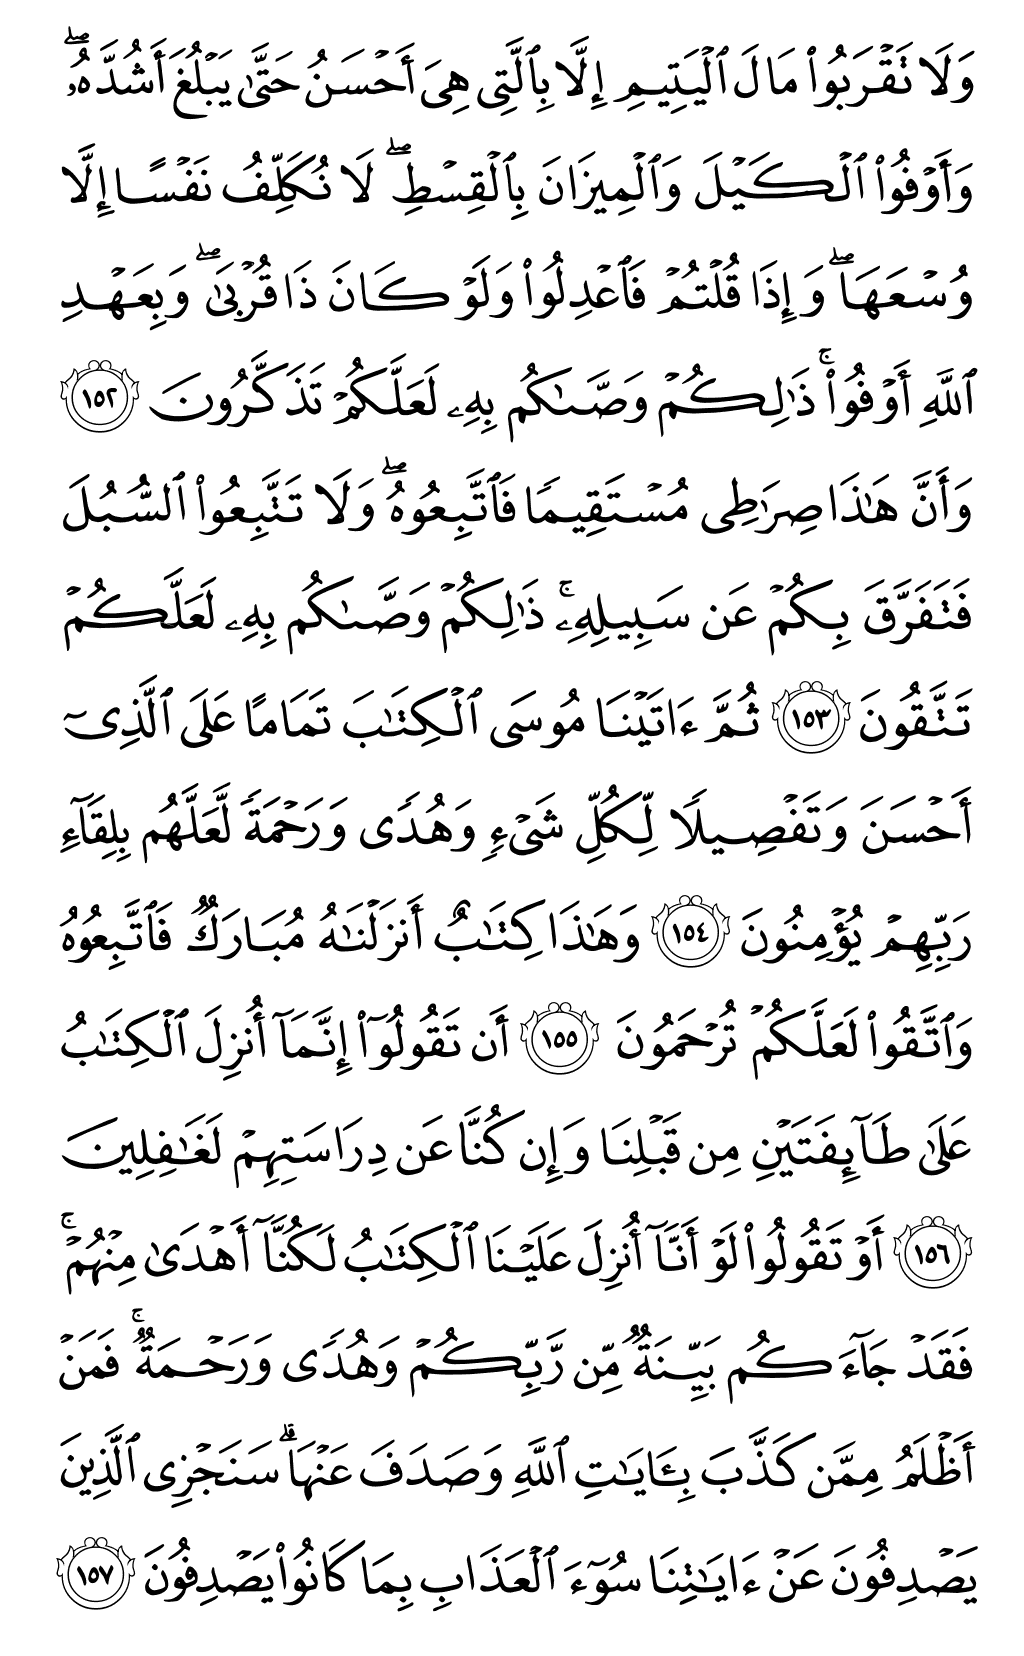 وَلَا تَقۡرَبُواْ مَالَ ٱلۡيَتِيمِ إِلَّا بِٱلَّتِي هِيَ أَحۡسَنُ حَتَّىٰ يَبۡلُغَ أَشُدَّهُۥۖ
وَأَوۡفُواْ ٱلۡكَيۡلَ وَٱلۡمِيزَانَ بِٱلۡقِسۡطِۖ لَا نُكَلِّفُ نَفۡسًا إِلَّا
وُسۡعَهَاۖ وَإِذَا قُلۡتُمۡ فَٱعۡدِلُواْ وَلَوۡ كَانَ ذَا قُرۡبَىٰۖ وَبِعَهۡدِ
ٱللَّهِ أَوۡفُواْۚ ذَٰلِكُمۡ وَصَّىٰكُم بِهِۦ لَعَلَّكُمۡ تَذَكَّرُونَ ١٥٢
وَأَنَّ هَٰذَا صِرَٰطِي مُسۡتَقِيمٗا فَٱتَّبِعُوهُۖ وَلَا تَتَّبِعُواْ ٱلسُّبُلَ
فَتَفَرَّقَ بِكُمۡ عَن سَبِيلِهِۦۚ ذَٰلِكُمۡ وَصَّىٰكُم بِهِۦ لَعَلَّكُمۡ
تَتَّقُونَ ١٥٣ ثُمَّ ءَاتَيۡنَا مُوسَى ٱلۡكِتَٰبَ تَمَامًا عَلَى ٱلَّذِيٓ
أَحۡسَنَ وَتَفۡصِيلٗا لِّكُلِّ شَيۡءٖ وَهُدٗى وَرَحۡمَةٗ لَّعَلَّهُم بِلِقَآءِ
رَبِّهِمۡ يُؤۡمِنُونَ ١٥٤ وَهَٰذَا كِتَٰبٌ أَنزَلۡنَٰهُ مُبَارَكٞ فَٱتَّبِعُوهُ
وَٱتَّقُواْ لَعَلَّكُمۡ تُرۡحَمُونَ ١٥٥ أَن تَقُولُوٓاْ إِنَّمَآ أُنزِلَ ٱلۡكِتَٰبُ
عَلَىٰ طَآئِفَتَيۡنِ مِن قَبۡلِنَا وَإِن كُنَّا عَن دِرَاسَتِهِمۡ لَغَٰفِلِينَ
١٥٦ أَوۡ تَقُولُواْ لَوۡ أَنَّآ أُنزِلَ عَلَيۡنَا ٱلۡكِتَٰبُ لَكُنَّآ أَهۡدَىٰ مِنۡهُمۡۚ
فَقَدۡ جَآءَكُم بَيِّنَةٞ مِّن رَّبِّكُمۡ وَهُدٗى وَرَحۡمَةٞۚ فَمَنۡ
أَظۡلَمُ مِمَّن كَذَّبَ بِـَٔايَٰتِ ٱللَّهِ وَصَدَفَ عَنۡهَاۗ سَنَجۡزِي ٱلَّذِينَ
يَصۡدِفُونَ عَنۡ ءَايَٰتِنَا سُوٓءَ ٱلۡعَذَابِ بِمَا كَانُواْ يَصۡدِفُونَ ١٥٧